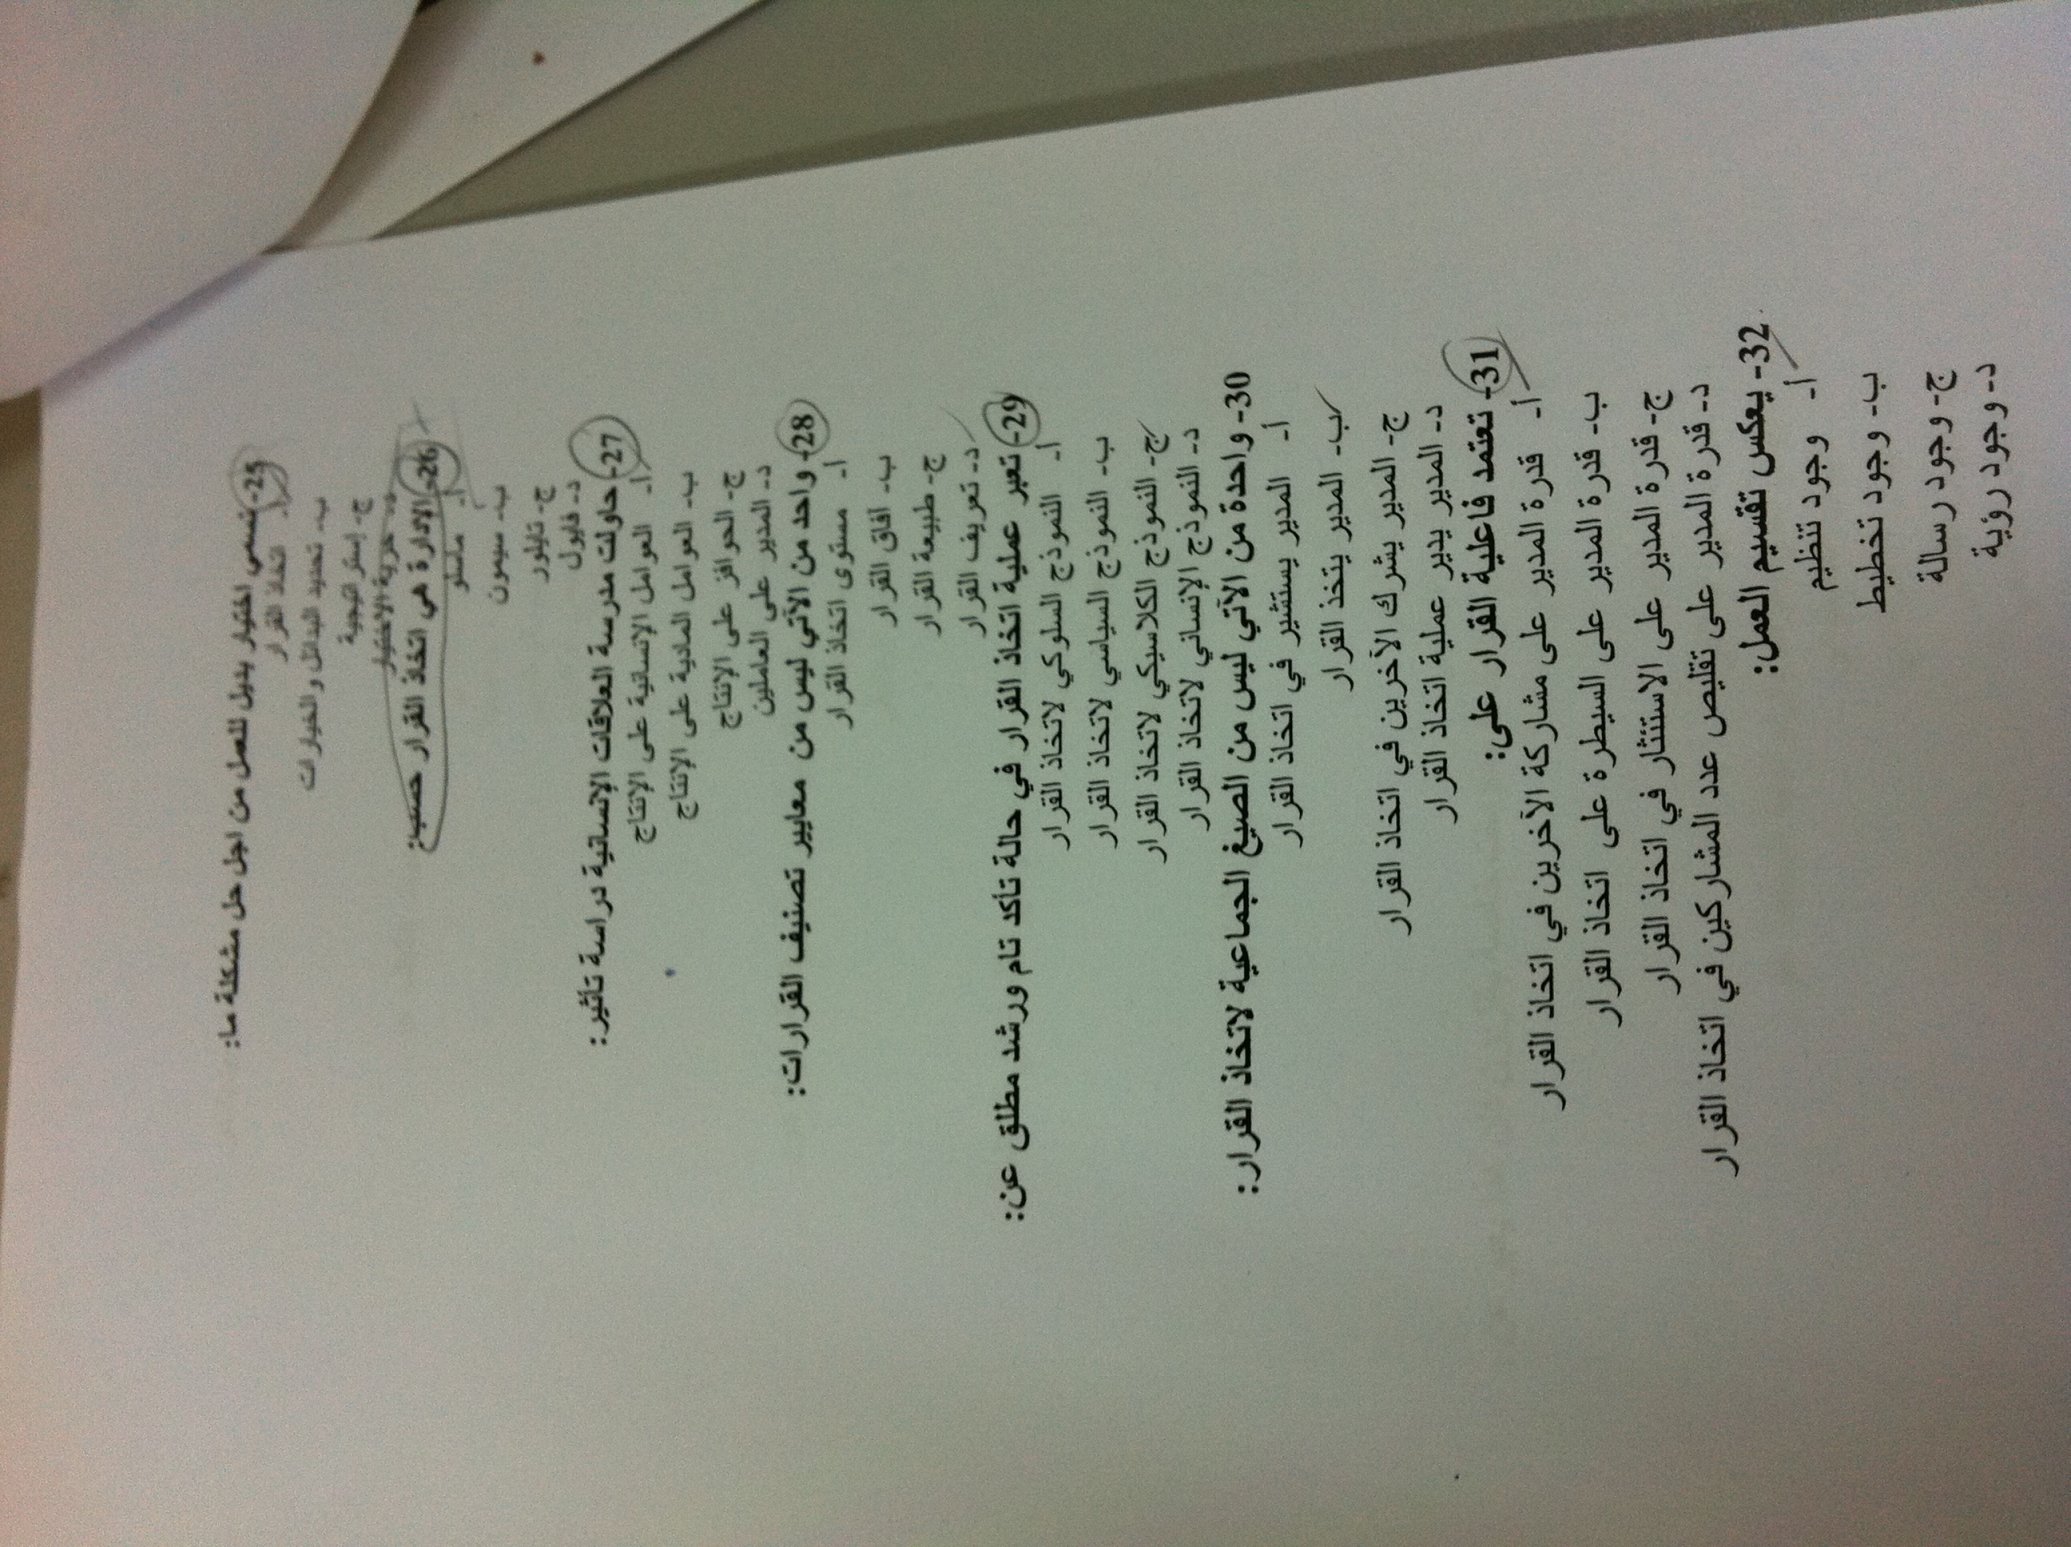 25- تسمى اختيار بديل للعمل من اجل حل مشكلة ما:
أ- اتخاذ القرار
ب- تحديد البدائل والخيارات
ج- إستراتيجية
د- حرية الاختيار
26- الإدارة هي اتخاذ القرار حسب:
أ- ماسلو
ب- سيمون
ج- تايلور
د- فايول
27- حاولت مدرسة العلاقات الإنسانية دراسة تأثير:
أ- العوامل الإنسانية على الإنتاج
ب- العوامل المادية على الإنتاج
ج- الحوافز على الإنتاج
د- المدير على العاملين
28- واحد من الآتي ليس من معايير تصنيف القرارات:
أ- مستوى اتخاذ القرار
ب- آفاق القرار
ج- طبيعة القرار
د- تعريف القرار
29- تعبر عملية اتخاذ القرار في حالة تأكد تام ورشد مطلق عن:
أ- النموذج السلوكي لاتخاذ القرار
ب- النموذج السياسي لاتخاذ القرار
ج- النموذج الكلاسيكي لاتخاذ القرار
د- النموذج الإنساني لاتخاذ القرار
30- واحدة من الآتي ليس من الصيغ الجماعية لاتخاذ القرار:
أ- المدير يستشير في اتخاذ القرار
ب- المدير يتخذ القرار
ج- المدير يشرك الآخرين في اتخاذ القرار
د- المدير يدير عملية اتخاذ القرار
31- تعتمد فاعلية القرار على:
أ- قدرة المدير على مشاركة الآخرين في اتخاذ القرار
ب- قدرة المدير على السيطرة على اتخاذ القرار
ج- قدرة المدير على الاستئثار في اتخاذ القرار
د- قدرة المدير على تقليص عدد المشاركين في اتخاذ القرار
32- يعكس تقسيم العمل:
أ- وجود تنظيم
ب- وجود تخطيط
ج- وجود رسالة
د- وجود رؤية